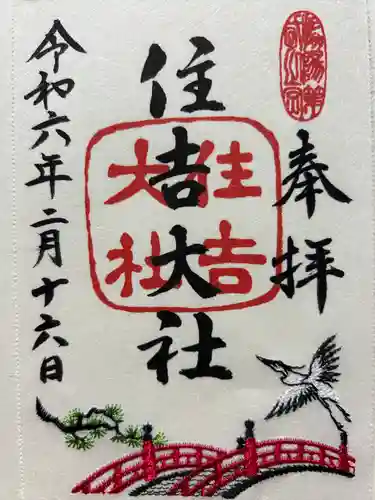 奉拝
住吉大社
令和六年二月十六日
住吉大社